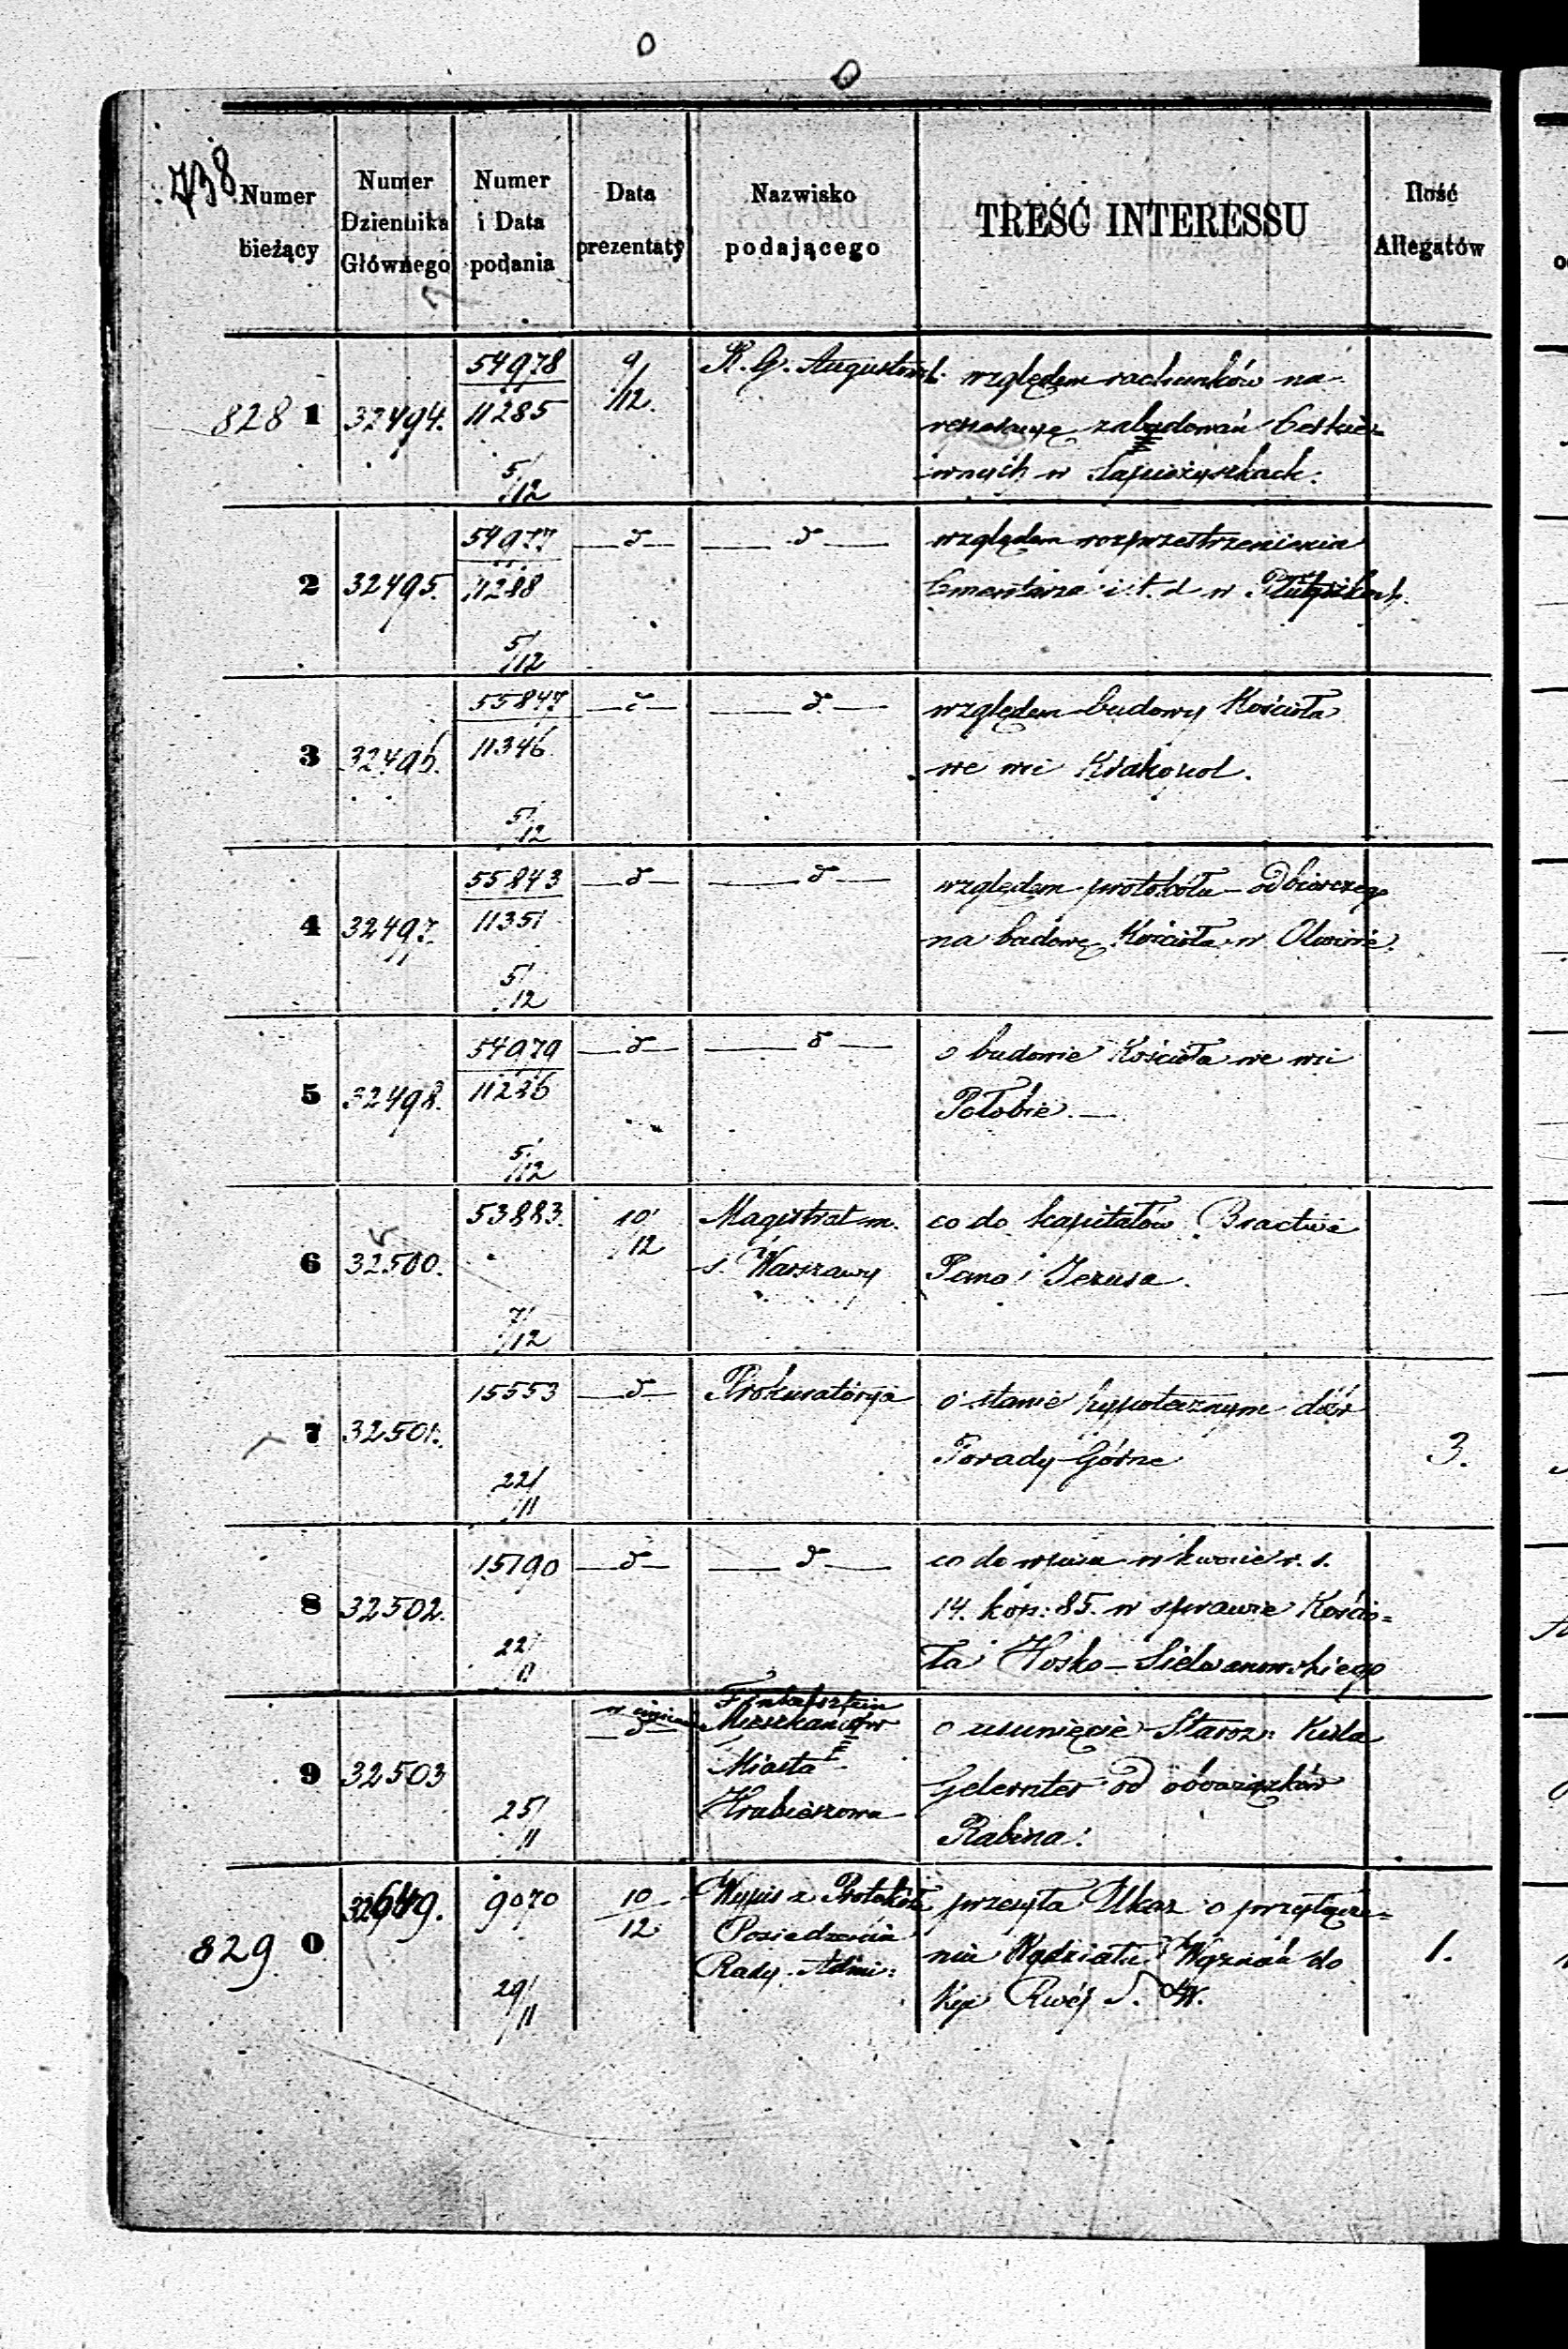 738
Numer bieżący
Numer Dziennika Głównego
Numer i Data podania
Data prezentaty
Nazwisko podającego
TREŚĆ INTERESSU
Ilość Allegatów
828 1 32494. 54978 11285 5/12 9/12. R. G. Augustowski względem rachunków na
zabudowań Cerkie=
wnych w
2 32495. 54977 11288 5/12 — d — — d — względem rozprzestrzenienia
Cmentarza i t. d w
3 32496. 55847 11346 5/12 — d — — d — względem budowy Kościoła
we wsi Krakopol.
4 32497. 55843 11351 5/12 — d — — d — względem protokółu odbiorczego
na budowę Kościoła w
5 32498. 54979 11236 5/12 — d — — d — o budowie Kościoła we wsi
6 32500. 53883. 7/12 10/12 Magistrat m. co do kapitałów Bractwa
s. Warszawy Pana Jezusa.
7 32501. 15553 22/11 — d — Prokuratorya o stanie hypotecznym dóbr
Porady Górne 3.
8 32502. 15190 22/11 — d — — d — co do wpisu w kwocie r. s.
14. kop: 85. w sprawie Kościo=
ła
9 32503 25/11 — d — Mieszkańców o usunięcie Staroz:
Miasta Gelernter od obowiązków
Hrubieszowa Rabina.
829 0 9070 29/11 10/12. Wypis z Protokółu przesyła Ukaz o przyłącze=
Posiedzenia niu Wydziału Wyznań do 1.
Rady Admi: Kyi Rwéj S. W.